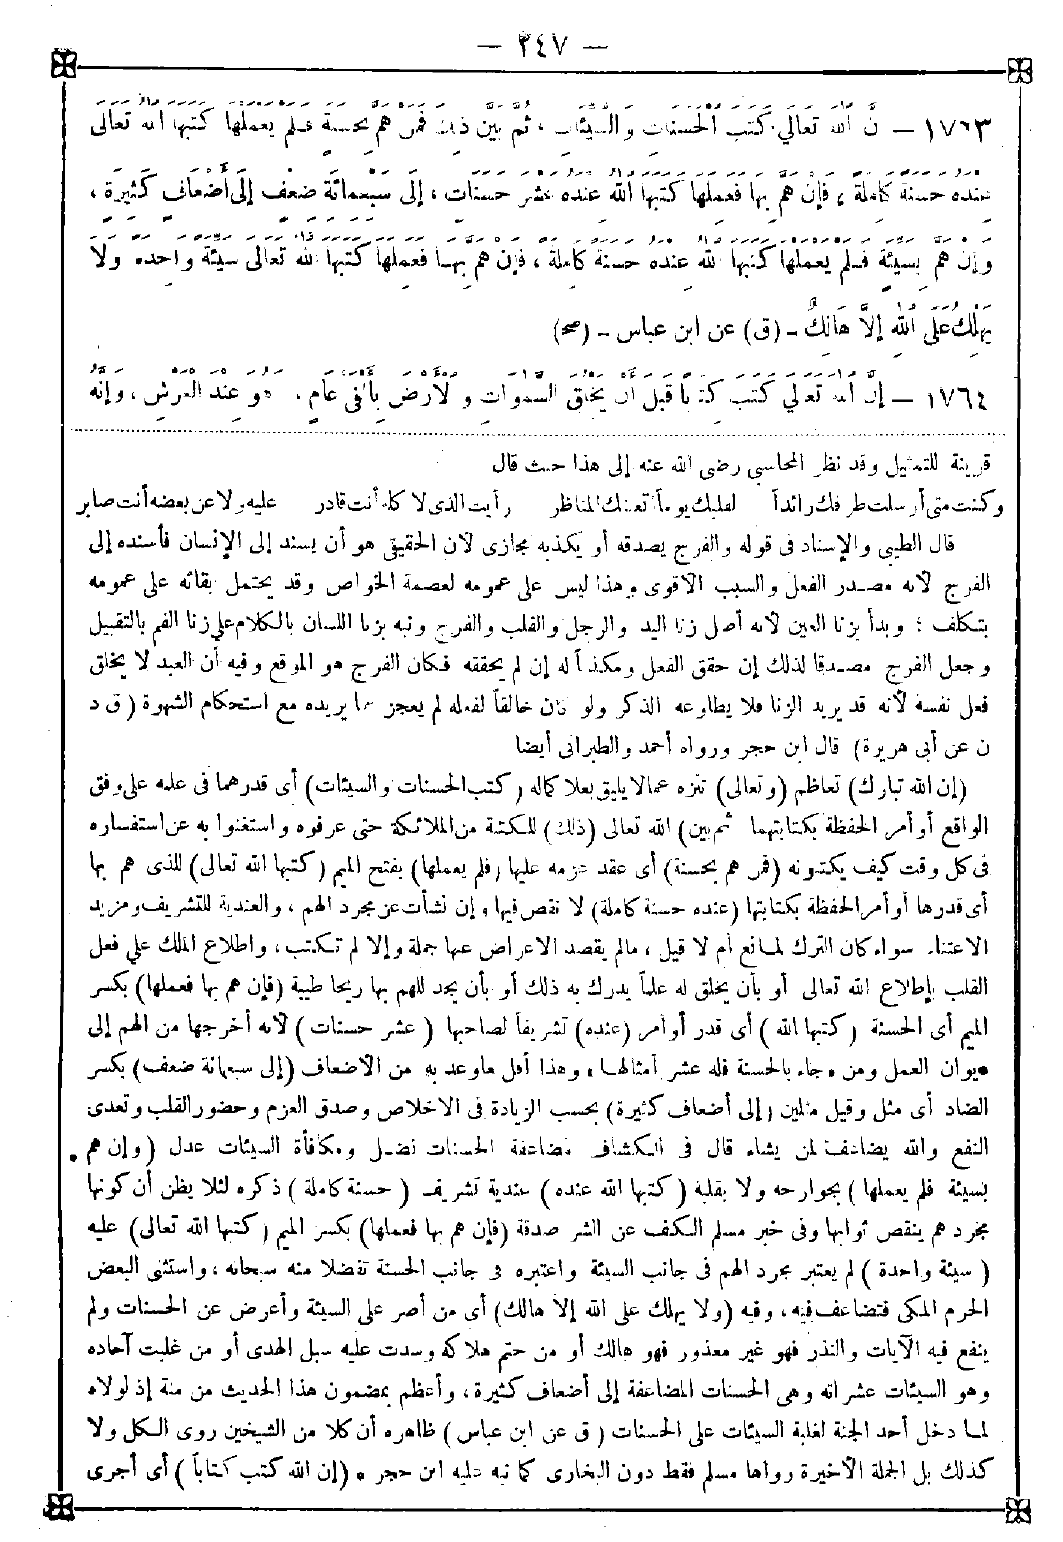 — ٢٤٧ —
١٧٦٣ — إِنَّ اللهَ تعالى كَتَبَ الْحَسَنَاتِ والسَّيِّئَاتِ، ثُمَّ بَيَّنَ ذَلِكَ فَمَنْ هَمَّ بِحَسَنَةٍ فَلَمْ يَعْمَلْهَا كَتَبَهَا اللهُ تَعَالَى
عِنْدَهُ حَسَنَةً كَامِلَةً، فَإِنْ هَمَّ بِهَا فَعَمِلَهَا كَتَبَهَا اللهُ عِنْدَهُ عَشْرَ حَسَنَاتٍ، إِلَى سَبْعِمِائَةِ ضِعْفٍ إِلَى أَضْعَافٍ كَثِيرَةٍ،
وَإِنْ هَمَّ بِسَيِّئَةٍ فَلَمْ يَعْمَلْهَا كَتَبَهَا اللهُ عِنْدَهُ حَسَنَةً كَامِلَةً، فَإِنْ هَمَّ بِهَا فَعَمِلَهَا كَتَبَهَا اللهُ تَعَالَى سَيِّئَةً وَاحِدَةً وَلَا
يَهْلِكُ عَلَى اللهِ إِلَّا هَالِكٌ - (ق) عن ابن عباس - (صح)
١٧٦٤ — إِنَّ اللهَ تَعَالَى كَتَبَ كِتَابًا قَبْلَ أَنْ يَخْلُقَ السَّمَوَاتِ وَالْأَرْضَ بِأَلْفَيْ عَامٍ، هُوَ عِنْدَ الْعَرْشِ، وَإِنَّهُ
قرينة للتمثيل وقد نظر المحاسبى رضى الله عنه إلى هذا حيث قال
وكنت متى أرسلت طرفك رائداً لقلبك يوماً أتعبتك المناظر رأيت الذى لا كله أنت قادر عليه ولا عن بعضه أنت صابر
قال الطيبى والإسناد فى قوله والفرج يصدقه أو يكذبه مجازى لان الحقيقى هو أن يسند إلى الإنسان فأسنده إلى
الفرج لأنه مصدر الفعل والسبب الاقوى وهذا ليس على عمومه لعصمة الخواص وقد يحتمل بقائه على عمومه
بتكلف؛ وبدأ بزنا العين لأنه أصل زنا اليد والرجل والقلب والفرج ونبه بزنا اللسان بالكلام على زنا الفم بالتقبيل
وجعل الفرج مصدقا لذلك إن حقق الفعل ومكذباً له إن لم يحققه فكان الفرج هو الموقع وفيه أن العبد لا يخلق
فعل نفسه لأنه قد يريد الزنا فلا يطاوعه الذكر ولو كان خالقاً لفعله لم يعجز عما يريده مع استحكام الشهوة (ق د
ن عن أبى هريرة) قال ابن حجر ورواه أحمد والطبرانى أيضا
(إن الله تبارك) تعاظم (وتعالى) تنزه عمالا يليق بعلا كماله (كتب الحسنات والسيئات) أى قدرهما فى علمه على وفق
الواقع أو أمر الحفظة بكتابتهما (ثم بين) الله تعالى (ذلك) للكتبة من الملائكة حتى عرفوه واستغنوا به عن استفساره
فى كل وقت كيف يكتبونه (فمن هم بحسنة) أى عقد عزمه عليها (فلم يعملها) بفتح الميم (كتبها الله تعالى) للذى هم بها
أى قدرها أو أمر الحفظة بكتابتها (عنده حسنة كاملة) لا نقص فيها وإن نشأت عن مجرد الهم، والعندية للتشريف ومزيد
الاعتناء. سواء كان الترك لمانع أم لا قيل، مالم يقصد الاعراض عنها جملة وإلا لم تكتب، واطلاع الملك على فعل
القلب بإطلاع الله تعالى أو بأن يخلق له علماً يدرك به ذلك أو بأن يجد للهم بها ريحا طيبة (فإن هم بها فعملها) بكسر
الميم أى الحسنة (كتبها الله) أى قدر أو أمر (عنده) تشريفاً لصاحبها (عشر حسنات) لأنه أخرجها من الهم إلى
ديوان العمل ومن جاء بالحسنة فله عشر أمثالها، وهذا أقل ماوعد به من الأضعاف (إلى سبعمائة ضعف) بكسر
الضاد أى مثل وقيل مثلين (إلى أضعاف كثيرة) بحسب الزيادة فى الاخلاص وصدق العزم وحضور القلب وتعدى
النفع والله يضاعف لمن يشاء قال فى الكشاف مضاعفة الحسنات تفضل ومكافأة السيئات عدل (وإن هم
بسيئة فلم يعملها) بجوارحه ولا بقلبه (كتبها الله عنده) عندية تشريف (حسنة كاملة) ذكره لئلا يظن أن كونها
مجرد هم ينقص ثوابها وفى خبر مسلم الكف عن الشر صدقة (فإن هم بها فعملها) بكسر الميم (كتبها الله تعالى) عليه
(سيئة واحدة) لم يعتبر مجرد الهم فى جانب السيئة واعتبره فى جانب الحسنة تفضلا منه سبحانه، واستثنى البعض
الحرم المكى فتضاعف فيه، وفيه (ولا يهلك على الله إلا هالك) أى من أصر على السيئة وأعرض عن الحسنات ولم
ينفع فيه الآيات والنذر فهو غير معذور فهو هالك أو من حتم هلاكه وسدت عليه سبل الهدى أو من غلبت آحاده
وهو السيئات عشراته وهى الحسنات المضاعفة إلى أضعاف كثيرة، وأعظم بمضمون هذا الحديث من منة إذ لولاه
لما دخل أحد الجنة لغلبة السيئات على الحسنات (ق عن ابن عباس) ظاهره أن كلا من الشيخين روى الكل ولا
كذلك بل الجملة الأخيرة رواها مسلم فقط دون البخارى كما نبه عليه ابن حجر * (إن الله كتب كتاباً) أى أجرى